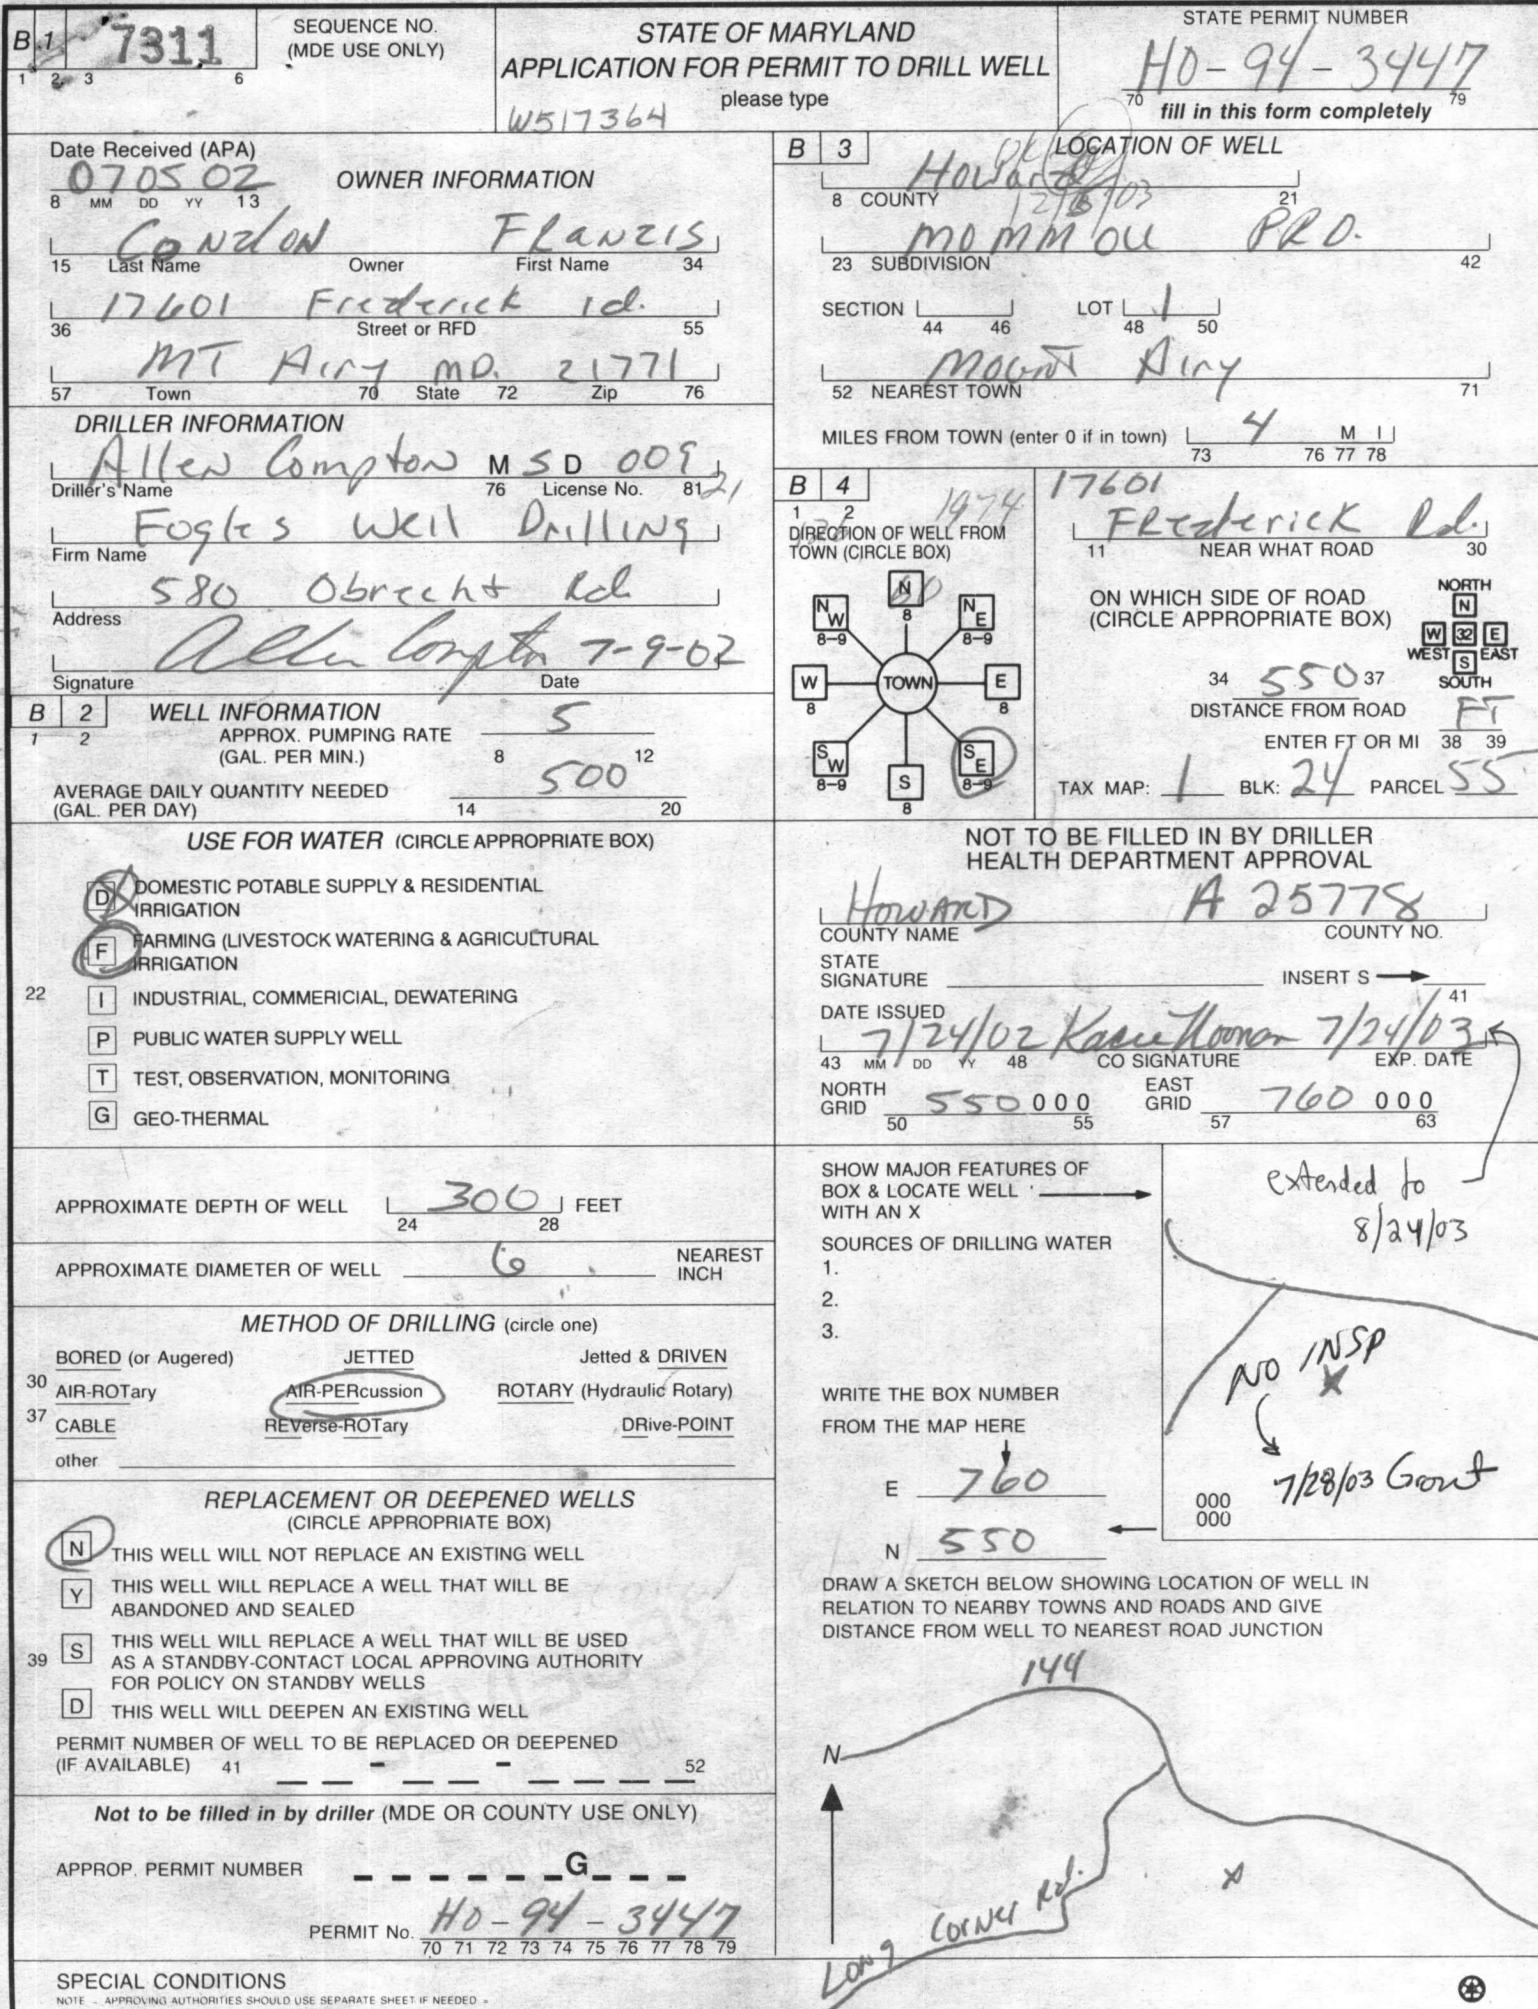 B 1 7311
1 2 3 6
SEQUENCE NO.
(MDE USE ONLY)
STATE OF MARYLAND
APPLICATION FOR PERMIT TO DRILL WELL
please type
W517364
STATE PERMIT NUMBER
HO-94-3447
70 79
fill in this form completely
Date Received (APA)
070502
8 MM DD YY 13
OWNER INFORMATION
Condon Francis
15 Last Name Owner First Name 34
17601 Frederick rd.
36 Street or RFD 55
MT Airy MD. 21771
57 Town 70 State 72 Zip 76
DRILLER INFORMATION
Allen Compton M S D 009
Driller's Name 76 License No. 81
Fogles Well Drilling
Firm Name
580 Obrecht Rd.
Address
Allen Compton 7-9-02
Signature Date
B 2 WELL INFORMATION
1 2
APPROX. PUMPING RATE 5
(GAL. PER MIN.) 8 12
AVERAGE DAILY QUANTITY NEEDED 500
(GAL. PER DAY) 14 20
USE FOR WATER (CIRCLE APPROPRIATE BOX)
D DOMESTIC POTABLE SUPPLY & RESIDENTIAL
IRRIGATION
F FARMING (LIVESTOCK WATERING & AGRICULTURAL
IRRIGATION
22 I INDUSTRIAL, COMMERICIAL, DEWATERING
P PUBLIC WATER SUPPLY WELL
T TEST, OBSERVATION, MONITORING
G GEO-THERMAL
APPROXIMATE DEPTH OF WELL 300 FEET
24 28
APPROXIMATE DIAMETER OF WELL 6 NEAREST
INCH
METHOD OF DRILLING (circle one)
BORED (or Augered) JETTED Jetted & DRIVEN
30 AIR-ROTary AIR-PERcussion ROTARY (Hydraulic Rotary)
37 CABLE REVerse-ROTary DRive-POINT
other
REPLACEMENT OR DEEPENED WELLS
(CIRCLE APPROPRIATE BOX)
N THIS WELL WILL NOT REPLACE AN EXISTING WELL
Y THIS WELL WILL REPLACE A WELL THAT WILL BE
ABANDONED AND SEALED
39 S THIS WELL WILL REPLACE A WELL THAT WILL BE USED
AS A STANDBY-CONTACT LOCAL APPROVING AUTHORITY
FOR POLICY ON STANDBY WELLS
D THIS WELL WILL DEEPEN AN EXISTING WELL
PERMIT NUMBER OF WELL TO BE REPLACED OR DEEPENED
(IF AVAILABLE) 41 - - 52
Not to be filled in by driller (MDE OR COUNTY USE ONLY)
APPROP. PERMIT NUMBER G
PERMIT No. HO-94-3447
70 71 72 73 74 75 76 77 78 79
SPECIAL CONDITIONS
NOTE - APPROVING AUTHORITIES SHOULD USE SEPARATE SHEET IF NEEDED
B 3 LOCATION OF WELL
Howard
8 COUNTY 21
MOMMOU PRD.
23 SUBDIVISION 42
SECTION LOT 1
44 46 48 50
Mount Airy
52 NEAREST TOWN 71
MILES FROM TOWN (enter 0 if in town) 4 M I
73 76 77 78
B 4
1 2
1974
DIRECTION OF WELL FROM
TOWN (CIRCLE BOX)
N
8
NW
8-9
NE
8-9
W
8
TOWN
E
8
SW
8-9
S
8
SE
8-9
17601
Frederick Rd.
11 NEAR WHAT ROAD 30
ON WHICH SIDE OF ROAD
(CIRCLE APPROPRIATE BOX)
NORTH
N
W 32 E
WEST EAST
S
SOUTH
34 550 37
DISTANCE FROM ROAD FT
ENTER FT OR MI 38 39
TAX MAP: 1 BLK: 24 PARCEL 55
NOT TO BE FILLED IN BY DRILLER
HEALTH DEPARTMENT APPROVAL
HOWARD A 25778
COUNTY NAME COUNTY NO.
STATE
SIGNATURE INSERT S
41
DATE ISSUED
7/24/02 Kacie Noonan 7/24/03
43 MM DD YY 48 CO SIGNATURE EXP. DATE
NORTH
GRID 550 000
50 55
EAST
GRID 760 000
57 63
SHOW MAJOR FEATURES OF
BOX & LOCATE WELL
WITH AN X
SOURCES OF DRILLING WATER
1.
2.
3.
WRITE THE BOX NUMBER
FROM THE MAP HERE
E 760
N 550
extended to
8/24/03
NO INSP
X
7/28/03 Grout
000
000
DRAW A SKETCH BELOW SHOWING LOCATION OF WELL IN
RELATION TO NEARBY TOWNS AND ROADS AND GIVE
DISTANCE FROM WELL TO NEAREST ROAD JUNCTION
144
N
X
Long Corner Rd.